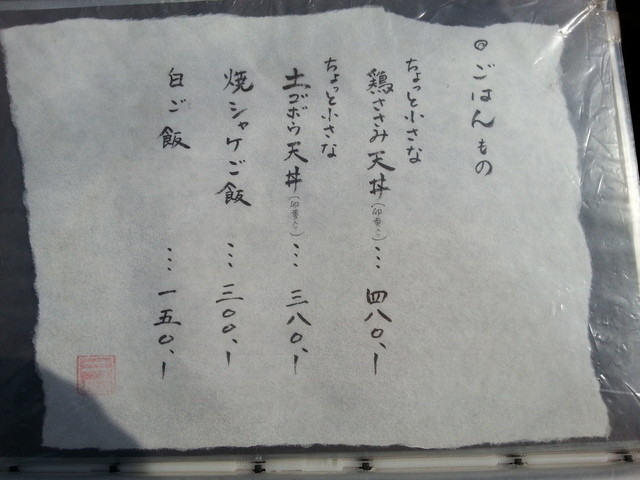 ◎ごはんもの
ちょっと小さな
鶏ささみ天丼(卵黄入り)… 四八〇、ー
ちょっと小さな
土ゴボウ天丼(卵黄入り)… 三八〇、ー
焼シャケご飯 … 三〇〇、ー
白ご飯 … 一五〇、ー